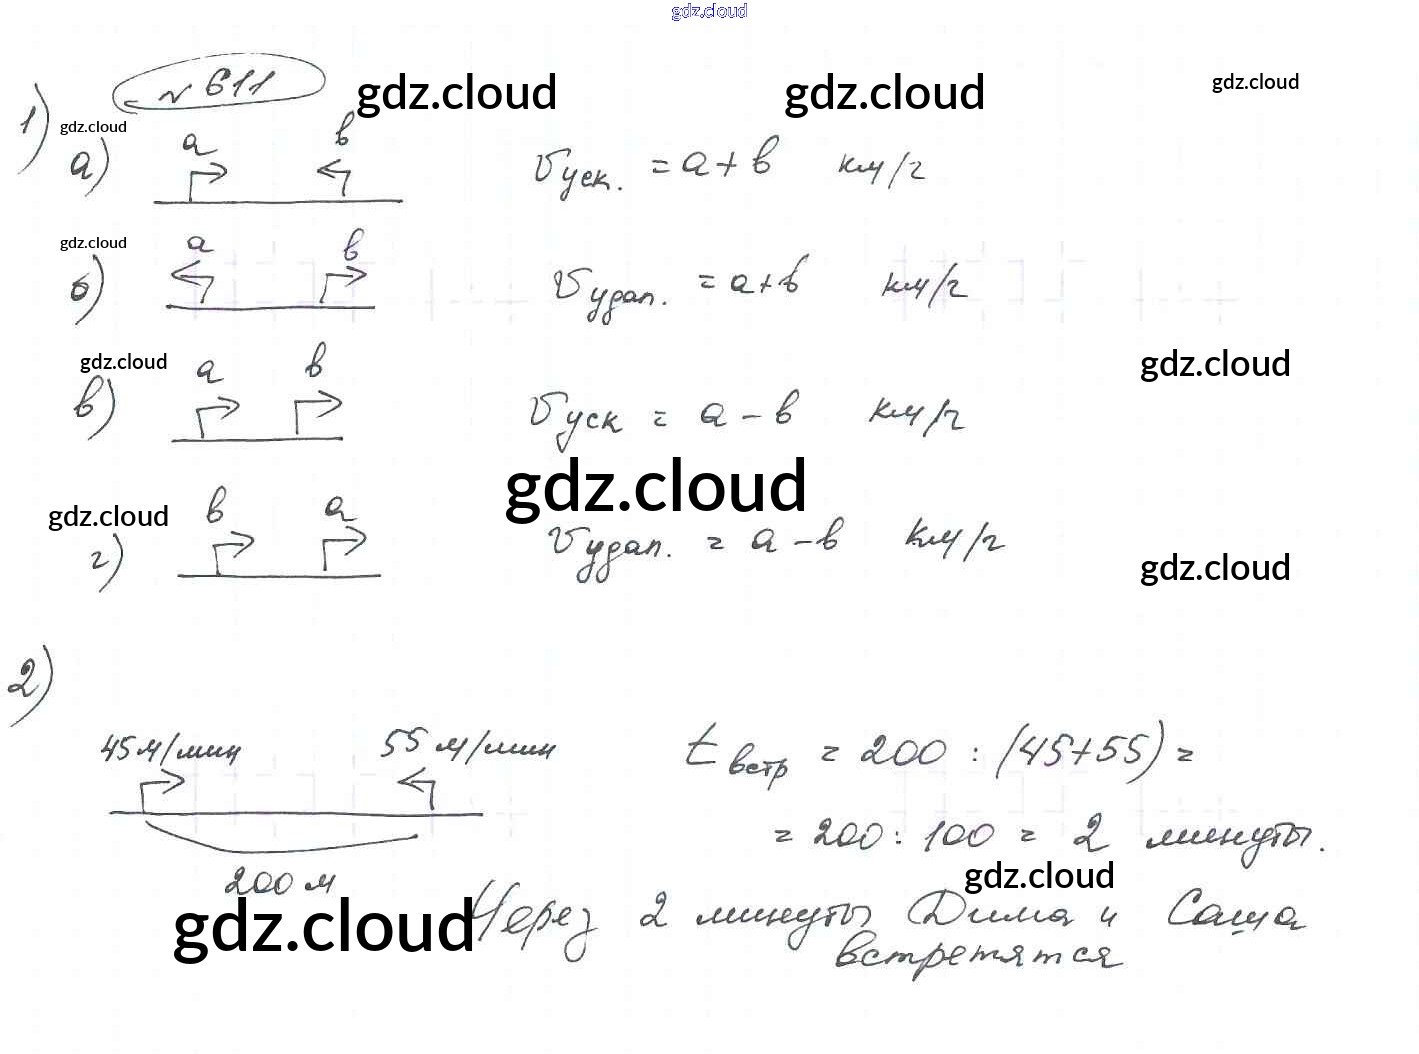 gdz.cloud
№ 611
gdz.cloud gdz.cloud gdz.cloud
1)
gdz.cloud
а) a в
Vуск. = a + в км/г
gdz.cloud
б) a в
Vудал. = a+в км/г
gdz.cloud
gdz.cloud
в) a в
Vуск = a - в км/г
gdz.cloud
gdz.cloud
г) в a
Vудал. = a - в км/г
gdz.cloud
2)
45 м/мин 55 м/мин
t встр = 200 : (45+55) =
= 200 : 100 = 2 минуты.
200 м
gdz.cloud
gdz.cloud
Через 2 минуты Дима и Саша
встретятся